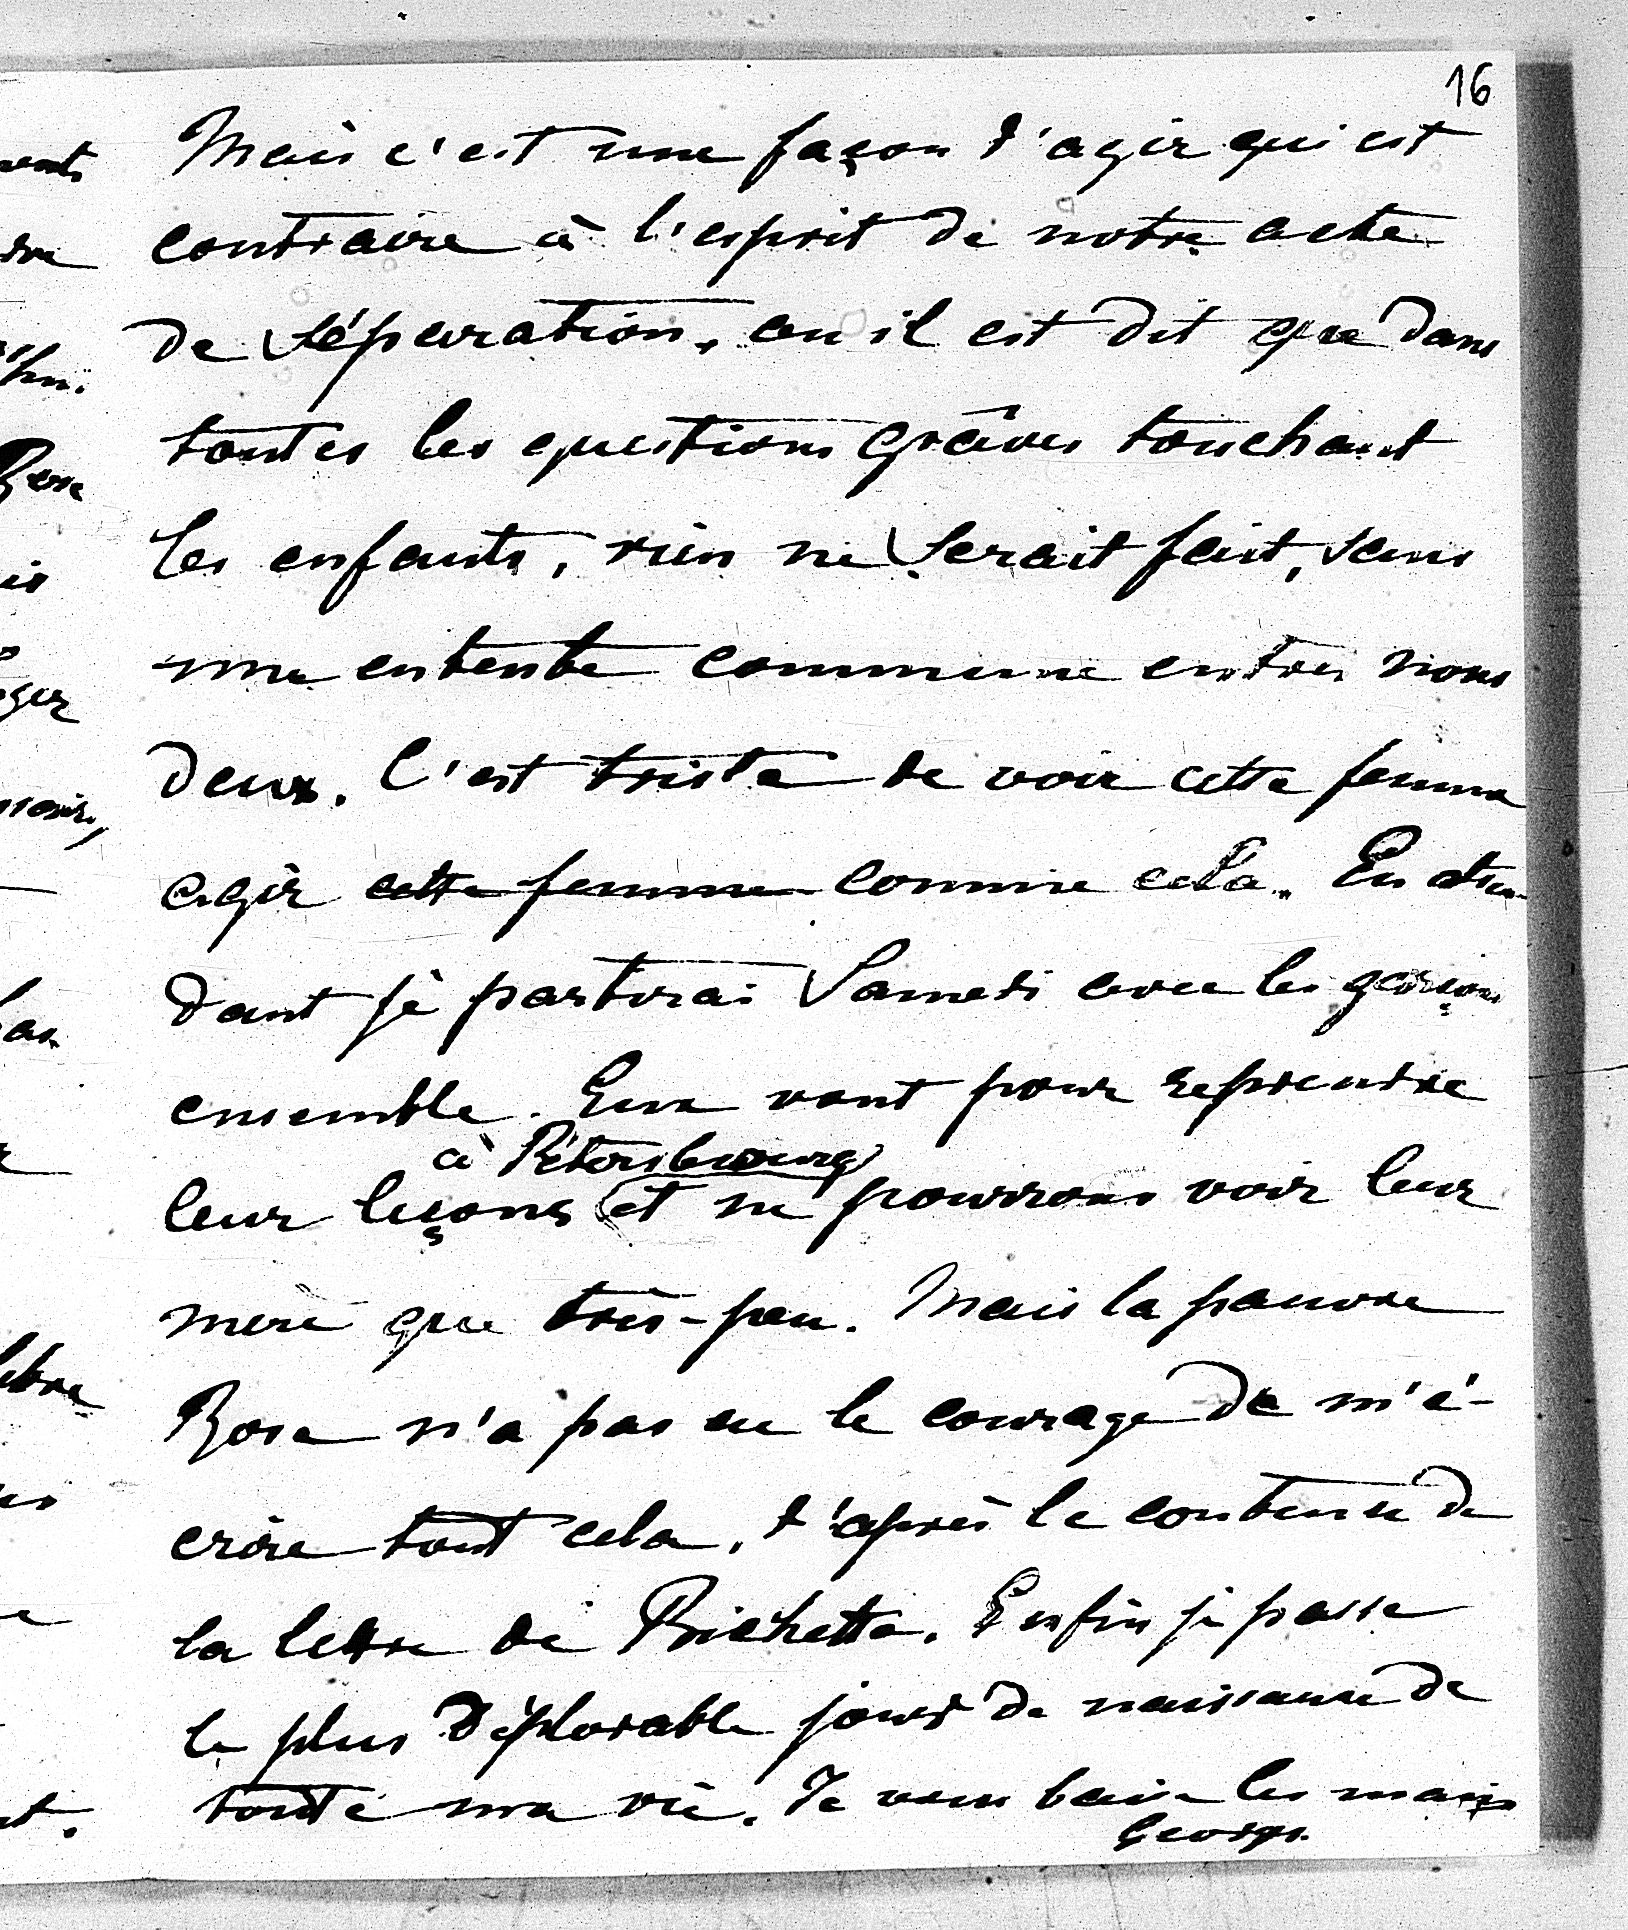 16
Mais c'est une façon d'agir qui est
contraire à l'esprit de notre acte
de séparation, ou il est dit que dans
toutes les questions grâves touchant
les enfants, rien ne serait fait, sans
une entente commune entre nous
deux. C'est triste de voir cette femme
agir cette femme comme cela. En atten-
dant je partirai Samedi avec les garçons
ensemble. Eux vont pour reprendre
à Pétersbourg
leur leçons et ne pourrons voir leur
mère que très-peu. Mais la pauvre
Rose n'a pas eu le courage de m'é-
crire tout cela, d'après le contenu de
la lettre de Bichette. Enfin je passe
le plus déplorable jour de naissance de
toute ma vie. Je vous baise les mains
George.